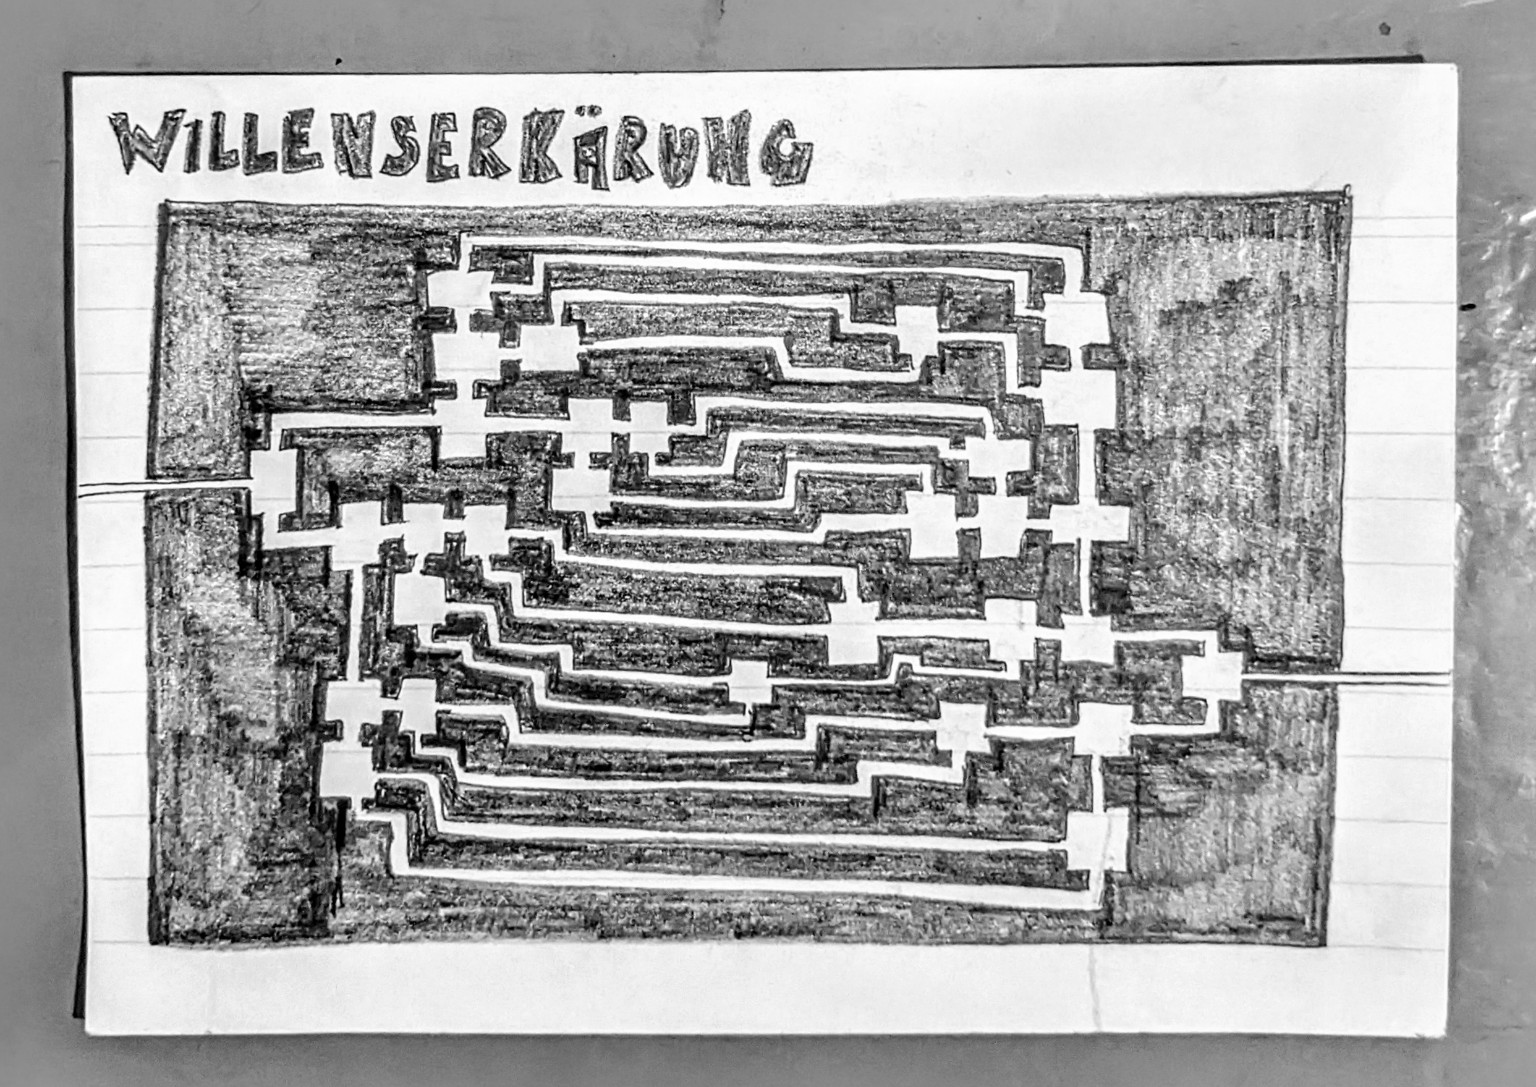 WILLENSERKÄRUNG